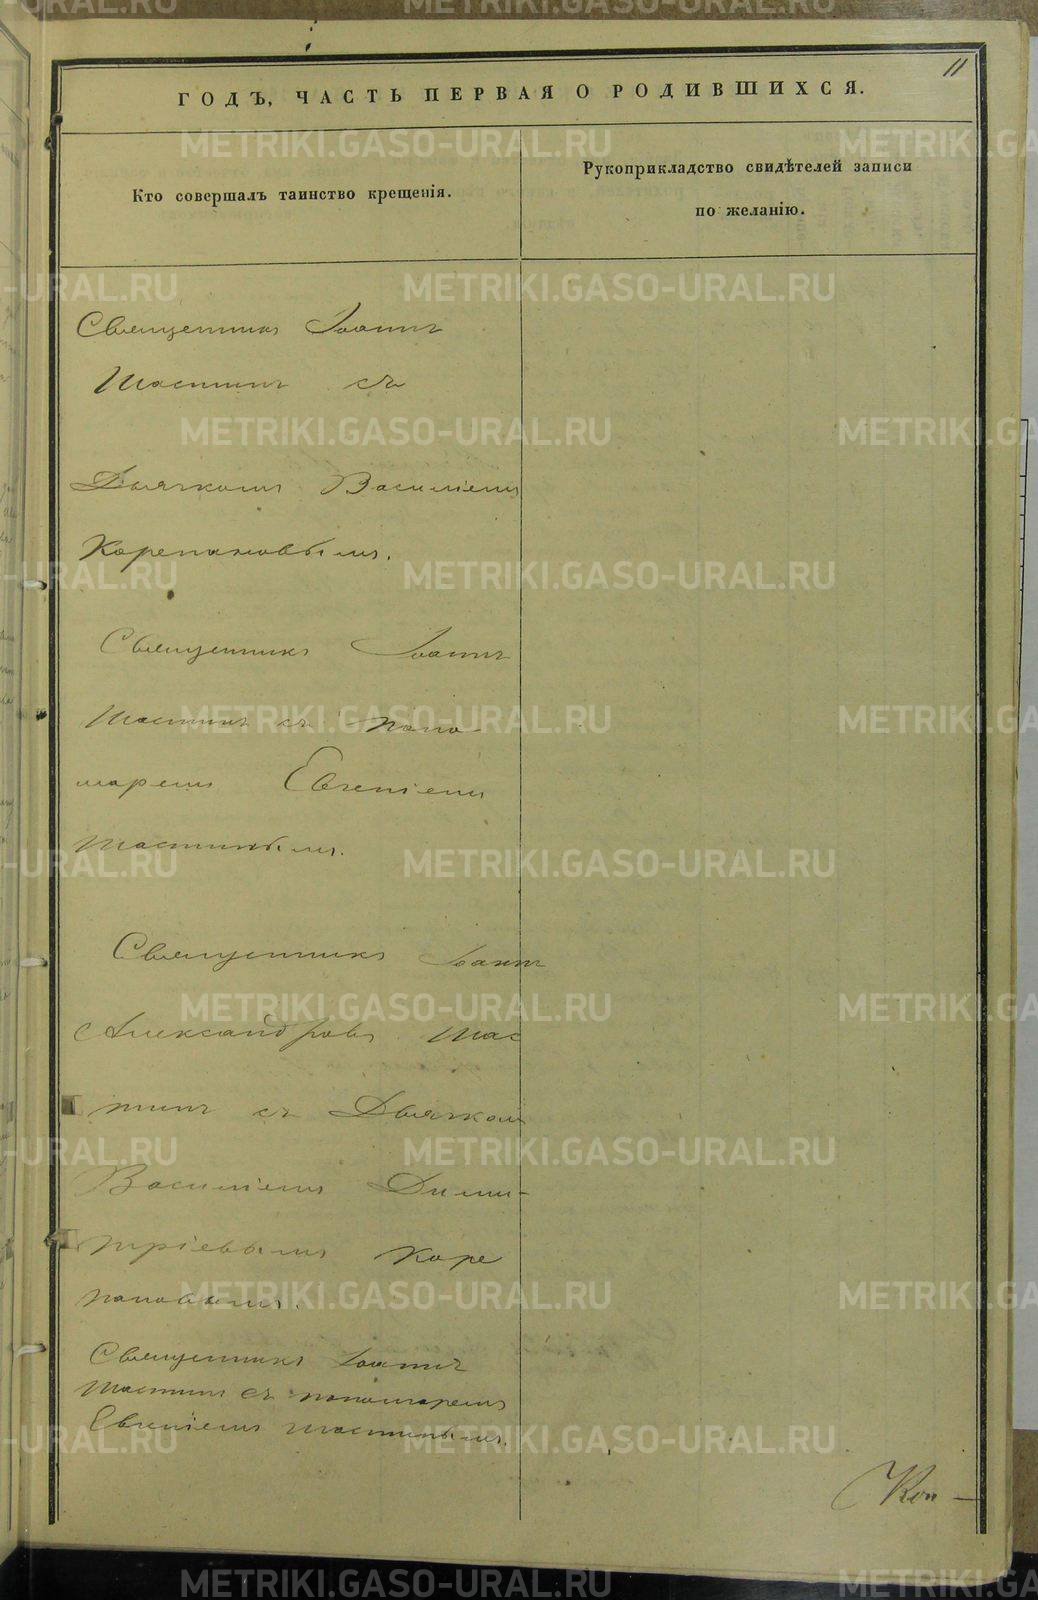 11
ГОДЪ, ЧАСТЬ ПЕРВАЯ О РОДИВШИХСЯ.
Кто совершалъ таинство крещенія.
Рукоприкладство свидѣтелей записи
по желанію.
Священникъ Іоаннъ
Шастинъ съ
Дьячкомъ Василіемъ
Корепановымъ.
Священникъ Іоаннъ
Шастинъ съ поно-
маремъ Евгеніемъ
Шастинымъ.
Священникъ Іоаннъ
Александровъ Шас
тинъ съ Дьячком
Василіемъ Дими-
тріевымъ Коре
пановымъ.
Священникъ Іоаннъ
Шастинъ съ пономаремъ
Евгеніемъ Шастинымъ.
METRIKI.GASO-URAL.RU